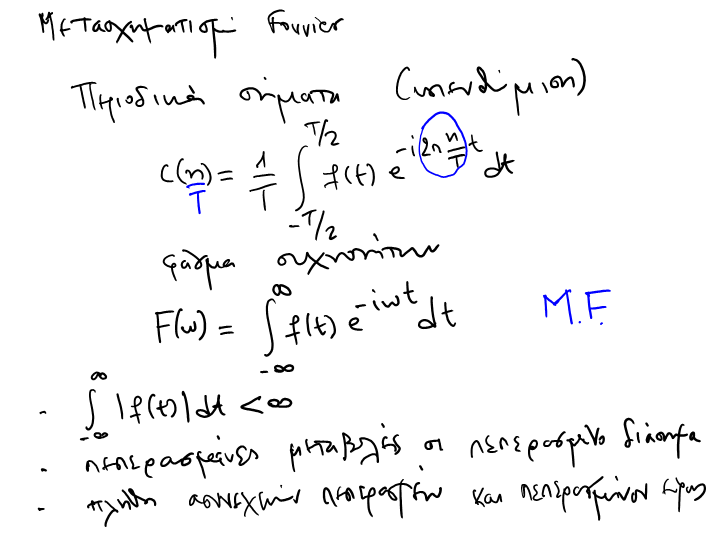 Μετασχηματισμοί Fourier
Περιοδικά σήματα (υπενθύμιση)
C(n/T) = 1/T ∫_{-T/2}^{T/2} f(t) e^{-i2π n/T t} dt
φάσμα συχνοτήτων
F(ω) = ∫_{-∞}^{∞} f(t) e^{-iωt} dt M.F.
- ∫_{-∞}^{∞} |f(t)| dt < ∞
- πεπερασμένες μεταβολές σε πεπερασμένο διάστημα
- πλήθος ασυνεχειών πεπερασμένο και πεπερασμένου ύψους